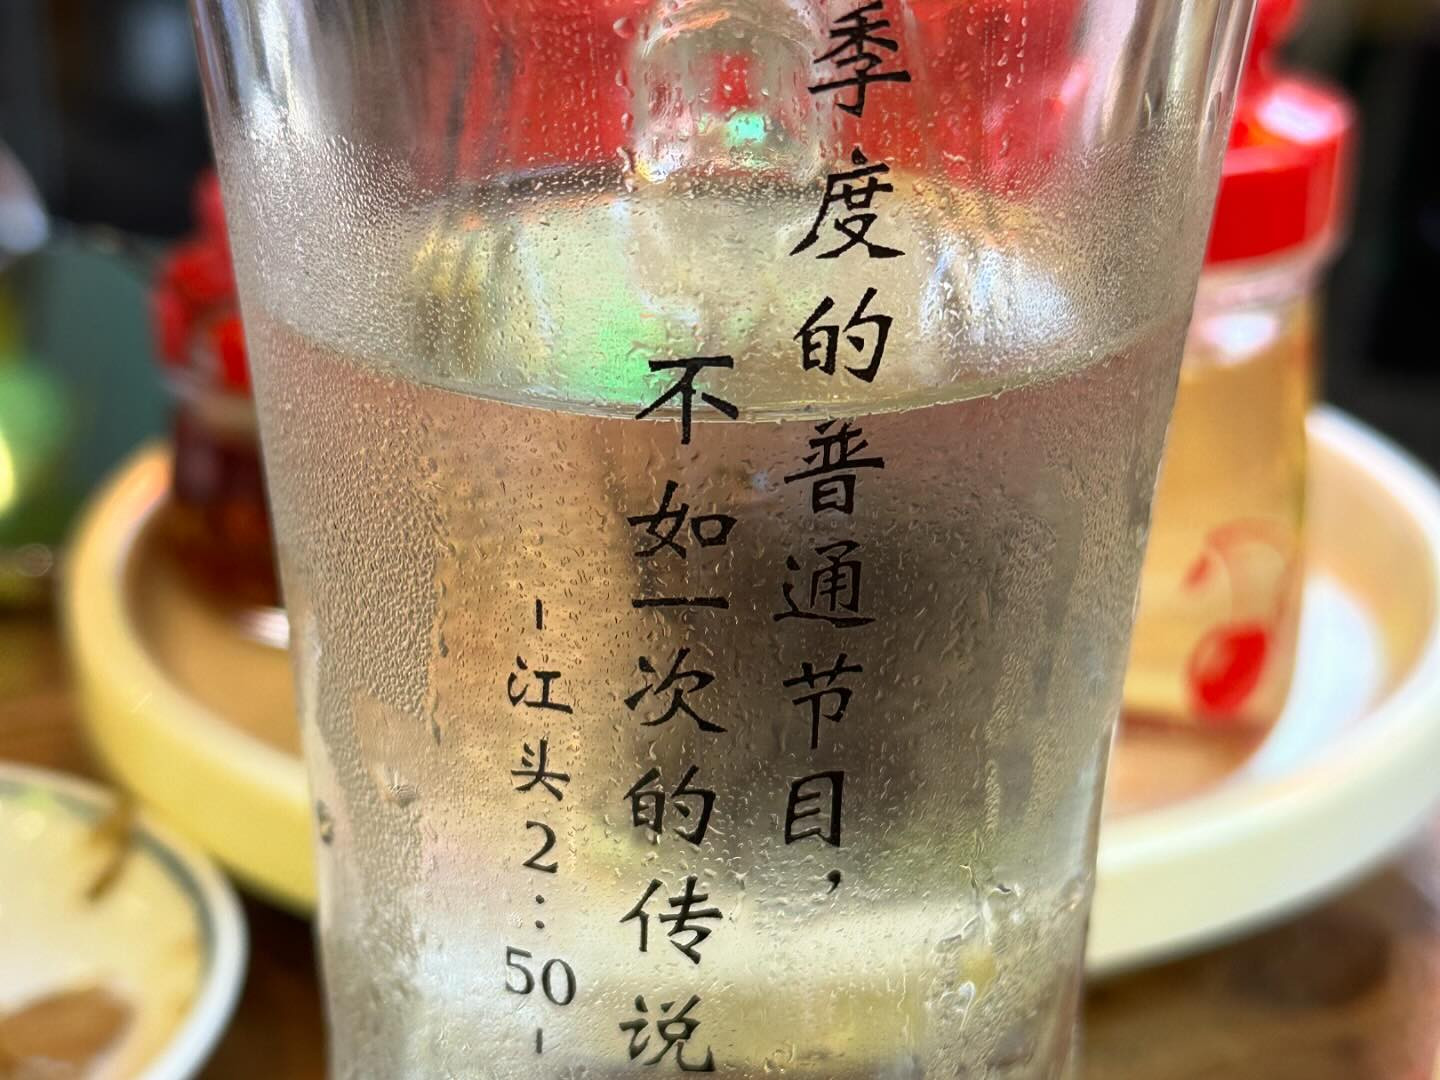 季度的普通节目，
不如一次的传说
-江头2:50-